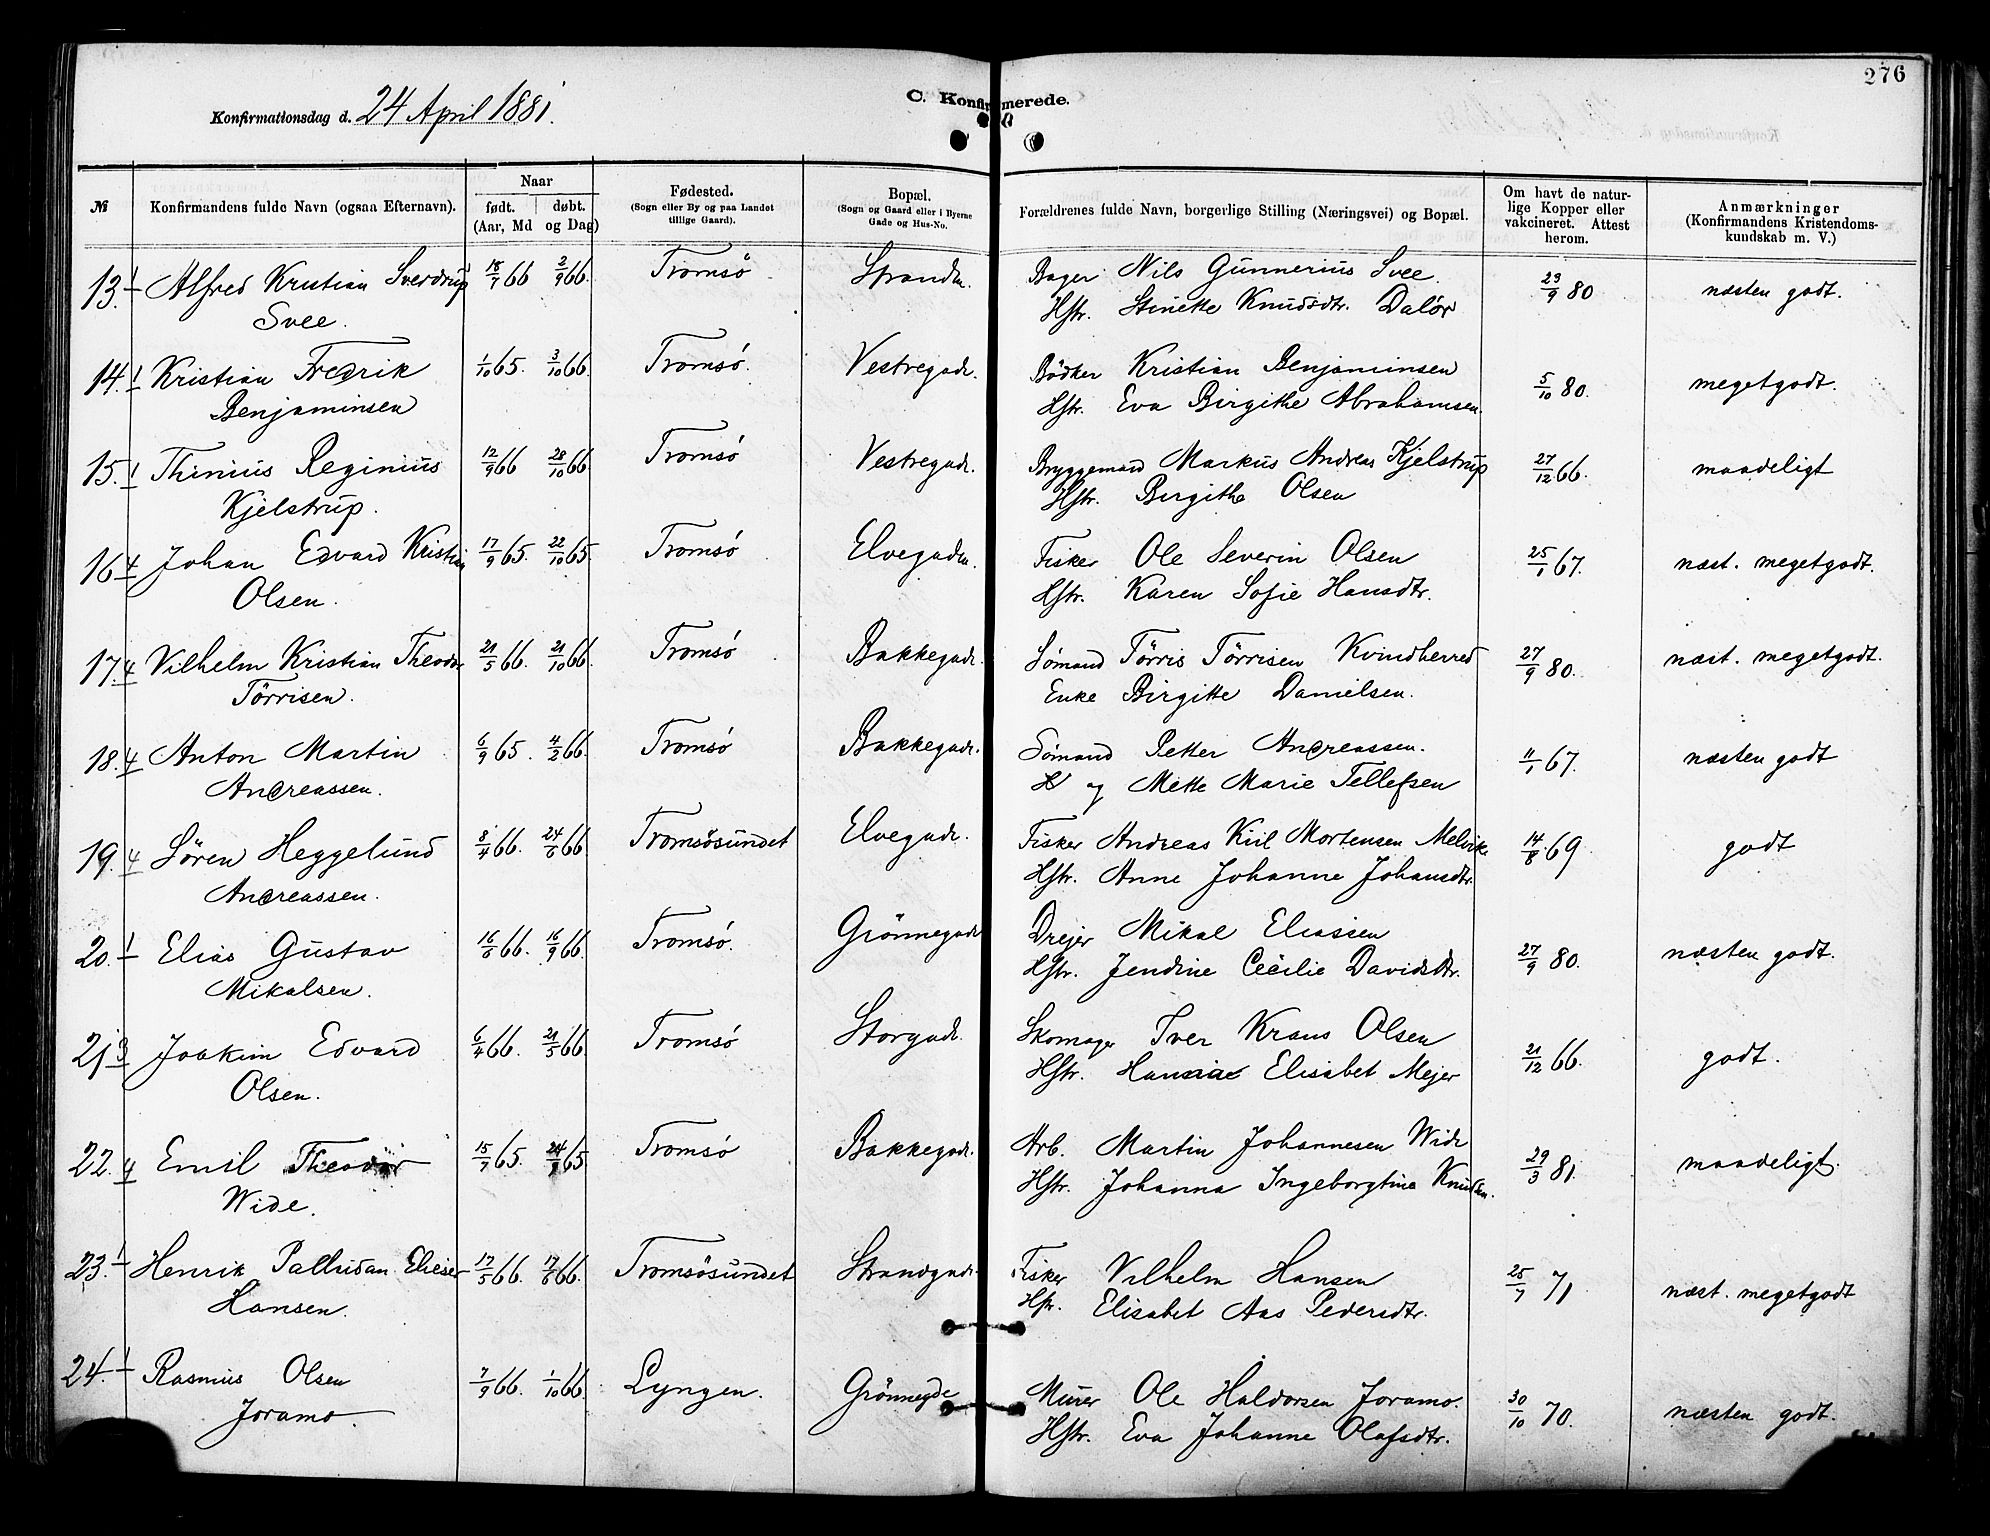 276
C. Konfirmerede.
Konfirmationsdag d. 24 April 1881.
№ Konfirmandens fulde Navn (ogsaa Efternavn). Naar født. (Aar, Md døbt. og Dag) Fødested. (Sogn eller By og paa Landet tillige Gaard). Bopæl. (Sogn og Gaard eller i Byerne Gade og Hus-No. Forældrenes fulde Navn, borgerlige Stilling (Næringsvei) og Bopæl. Om havt de naturlige Kopper eller vakcineret. Attest herom. Anmærkninger (Konfirmandens Kristendomskundskab m. V.)
13. 1 Alfred Kristian Sverdrup 18/7 66 2/9 66. Tromsö Strandn. Bager Nils Gunnerius Svee. 23/9 80 næsten godt.
Svee. Hstr. Stinette Knudsdtr. Dalör
14. 1 Kristian Fredrik 1/10 65. 3/10 66. Tromsö. Vestregade. Bödker Kristian Benjaminsen 5/10 80. megetgodt.
Benjaminsen Hstr. Eva Birgithe Abrahamsen.
15. 1 Thinius Reginius 12/9 66 28/10 66. Tromsö Vestregade. Bryggemand Markus Andreas Kjelstrup 27/12 66. maadeligt
Kjelstrup. Hstr. Birgithe Olsen
16 4 Johan Edvard Kristian 17/9 65. 22/10 65. Tromsö Elvegaden. Fisker Ole Severin Olsen 25/1 67. næst. megetgodt.
Olsen. Hstr. Karen Sofie Hansdtr.
17. 4 Vilhelm Kristian Theodor 21/5 66. 21/10 66. Tromsö Bakkegade. Sømand Törris Törrisen Kvindherred 27/9 80. næst. megetgodt.
Törrisen. Enke Birgitte Danielsen.
18. 4 Anton Martin 6/9 65. 4/2 66. Tromsö Bakkegade. Sømand Petter Andreassen. 11/1 67. næsten godt
Andreassen. H og Mette Marie Tellefsen
19. 4 Sören Heggelund 8/4 66. 24/6 66. Tromsösundet Elvegade. Fisker Andreas Kiil Mortensen Melvike 14/8 69 godt
Andreassen. Hstr. Anne Johanne Johansdtr.
20. 1 Elias Gustav 16/6 66. 16/9 66. Tromsö. Grönnegade Drejer Mikal Eliassen 27/9 80. næsten godt.
Mikalsen. Hstr. Jendine Cecilie Davidsdtr.
21 3 Joakim Edvard 6/4 66. 21/5 66. Tromsö Storgade. Skomager Iver Kraus Olsen 21/12 66. godt.
Olsen. Hstr. Elisabet Mejer
22. 4 Emil Theodor 15/7 65. 24/9 65. Tromsö Bakkegade. Arb. Martin Johannesen Wide 29/3 81. maadeligt.
Wide. Hstr. Johanna Ingeborgtine Knudsen.
23. 1 Henrik Palludan Elieser 17/5 66. 17/6 66. Tromsösundet Strandgade. Fisker Vilhelm Hansen 25/7 71 næst. megetgodt
Hansen. Hstr. Elisabet Aas Pedersdtr.
24. 1 Rasmus Olsen 7/9 66. 1/10 66. Lyngen. Grönnegde Murer Ole Haldorsen Joramo. 30/10 70. næsten godt.
Joramo. Hstr. Eva Johanne Olafsdtr.